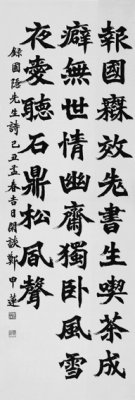 報國癡效先生喫茶成
癖無世情幽齋獨卧風雪
夜憂聽石鼎松風聲
錄國隱先生詩己丑孟春吉日開談鄭申蓮